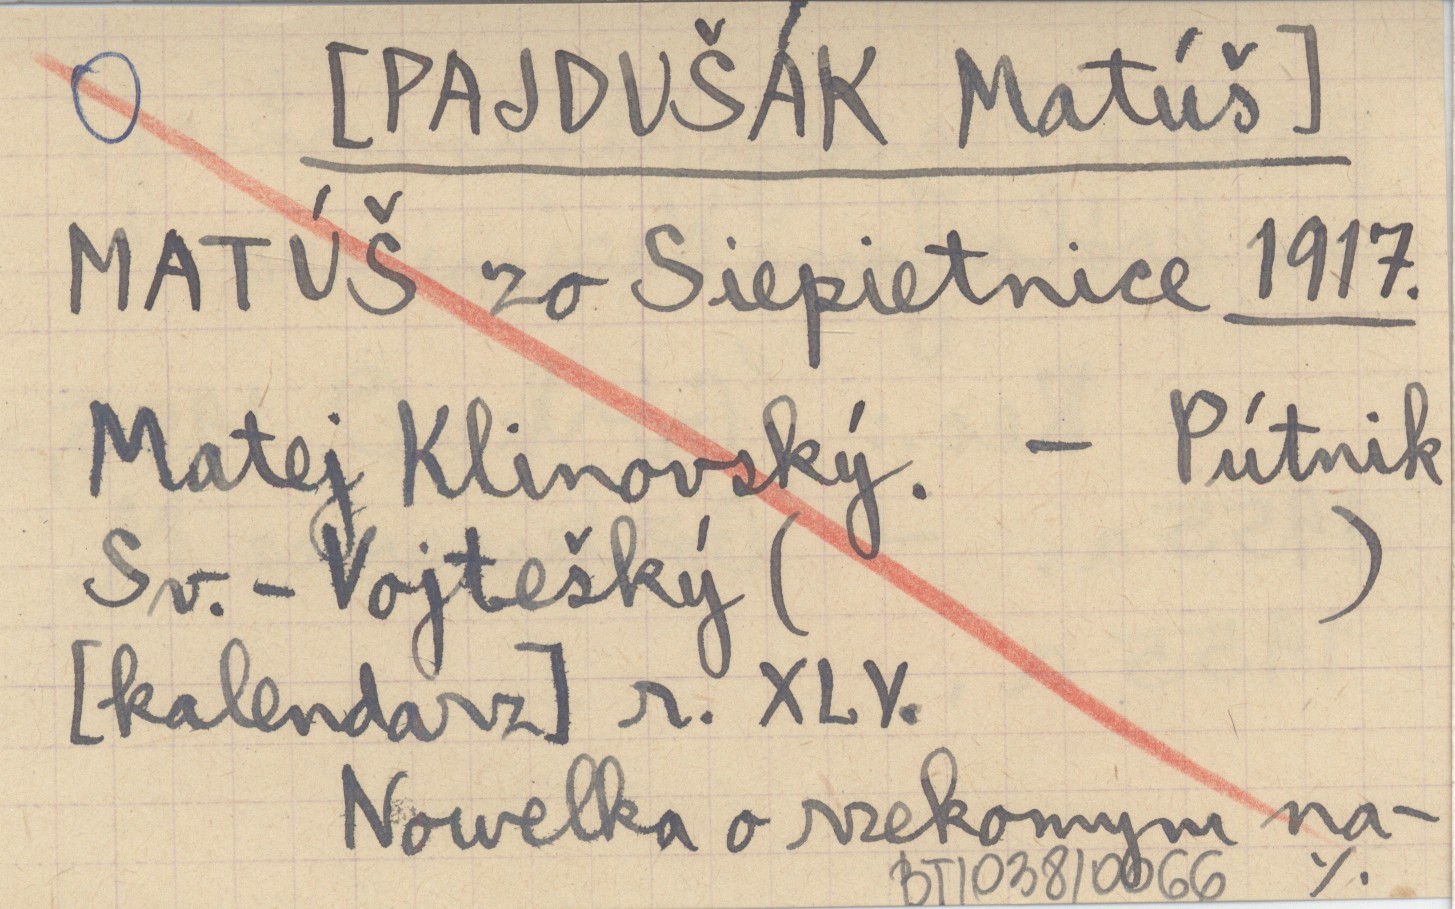 [PAJDUŠÁK Matúš]
MATÚŠ zo Siepietnice 1917.
Matej Klinovský. - Pútnik
Sv. - Vojtešký ( )
[kalendarz] r. XLV.
Nowelka o rzekomym na-
BT1038/0066 ./.